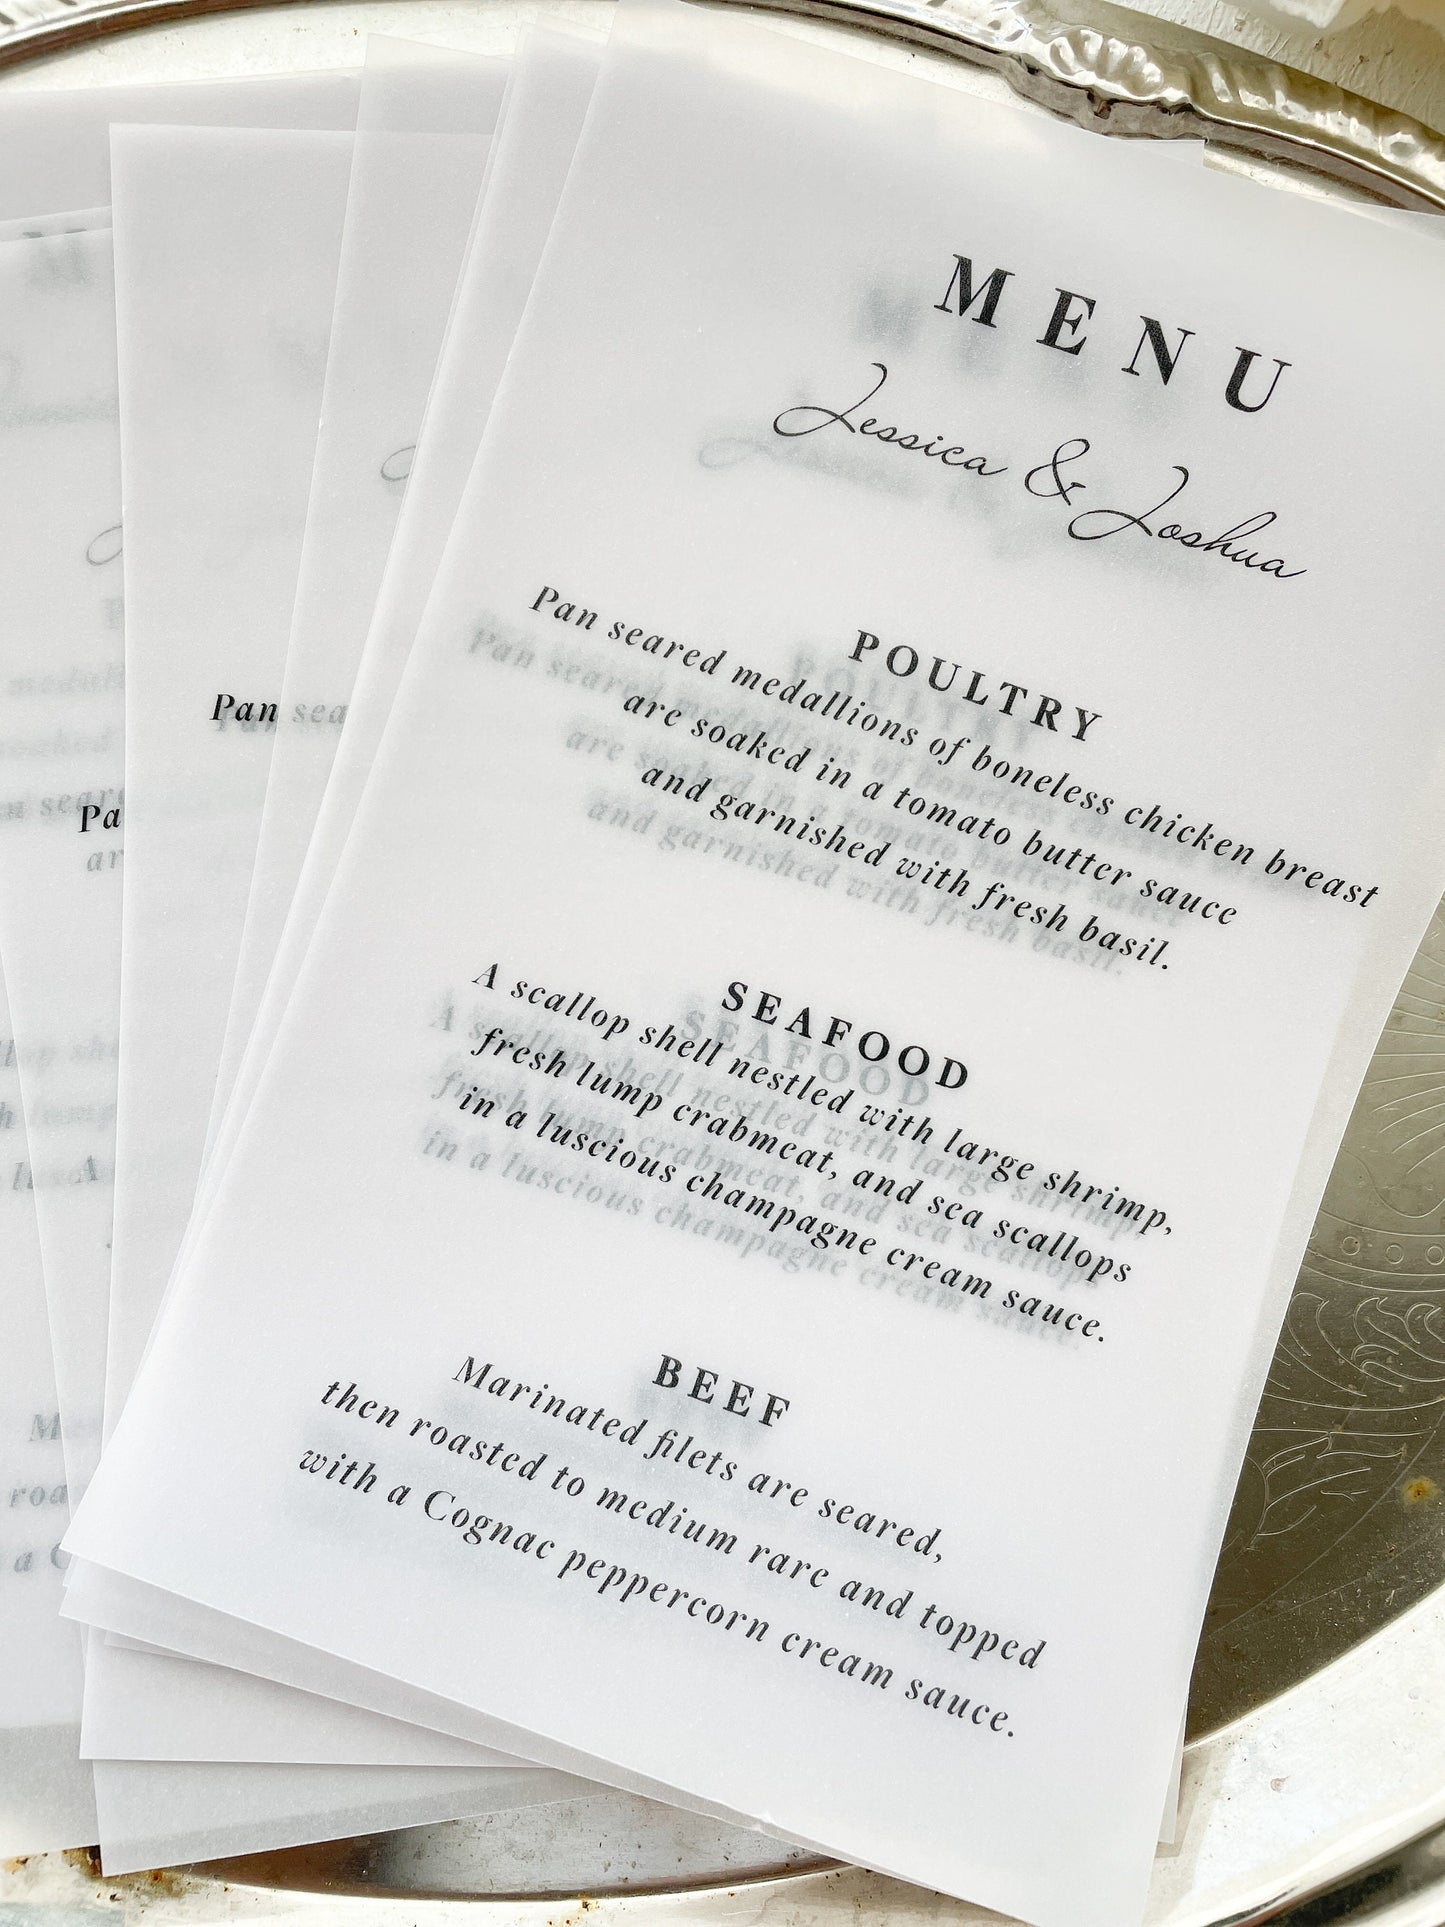 MENU
Jessica & Joshua
POULTRY
Pan seared medallions of boneless chicken breast
are soaked in a tomato butter sauce
and garnished with fresh basil.
SEAFOOD
A scallop shell nestled with large shrimp,
fresh lump crabmeat, and sea scallops
in a luscious champagne cream sauce.
BEEF
Marinated filets are seared,
then roasted to medium rare and topped
with a Cognac peppercorn cream sauce.
Pan sea
Pa
ar
A